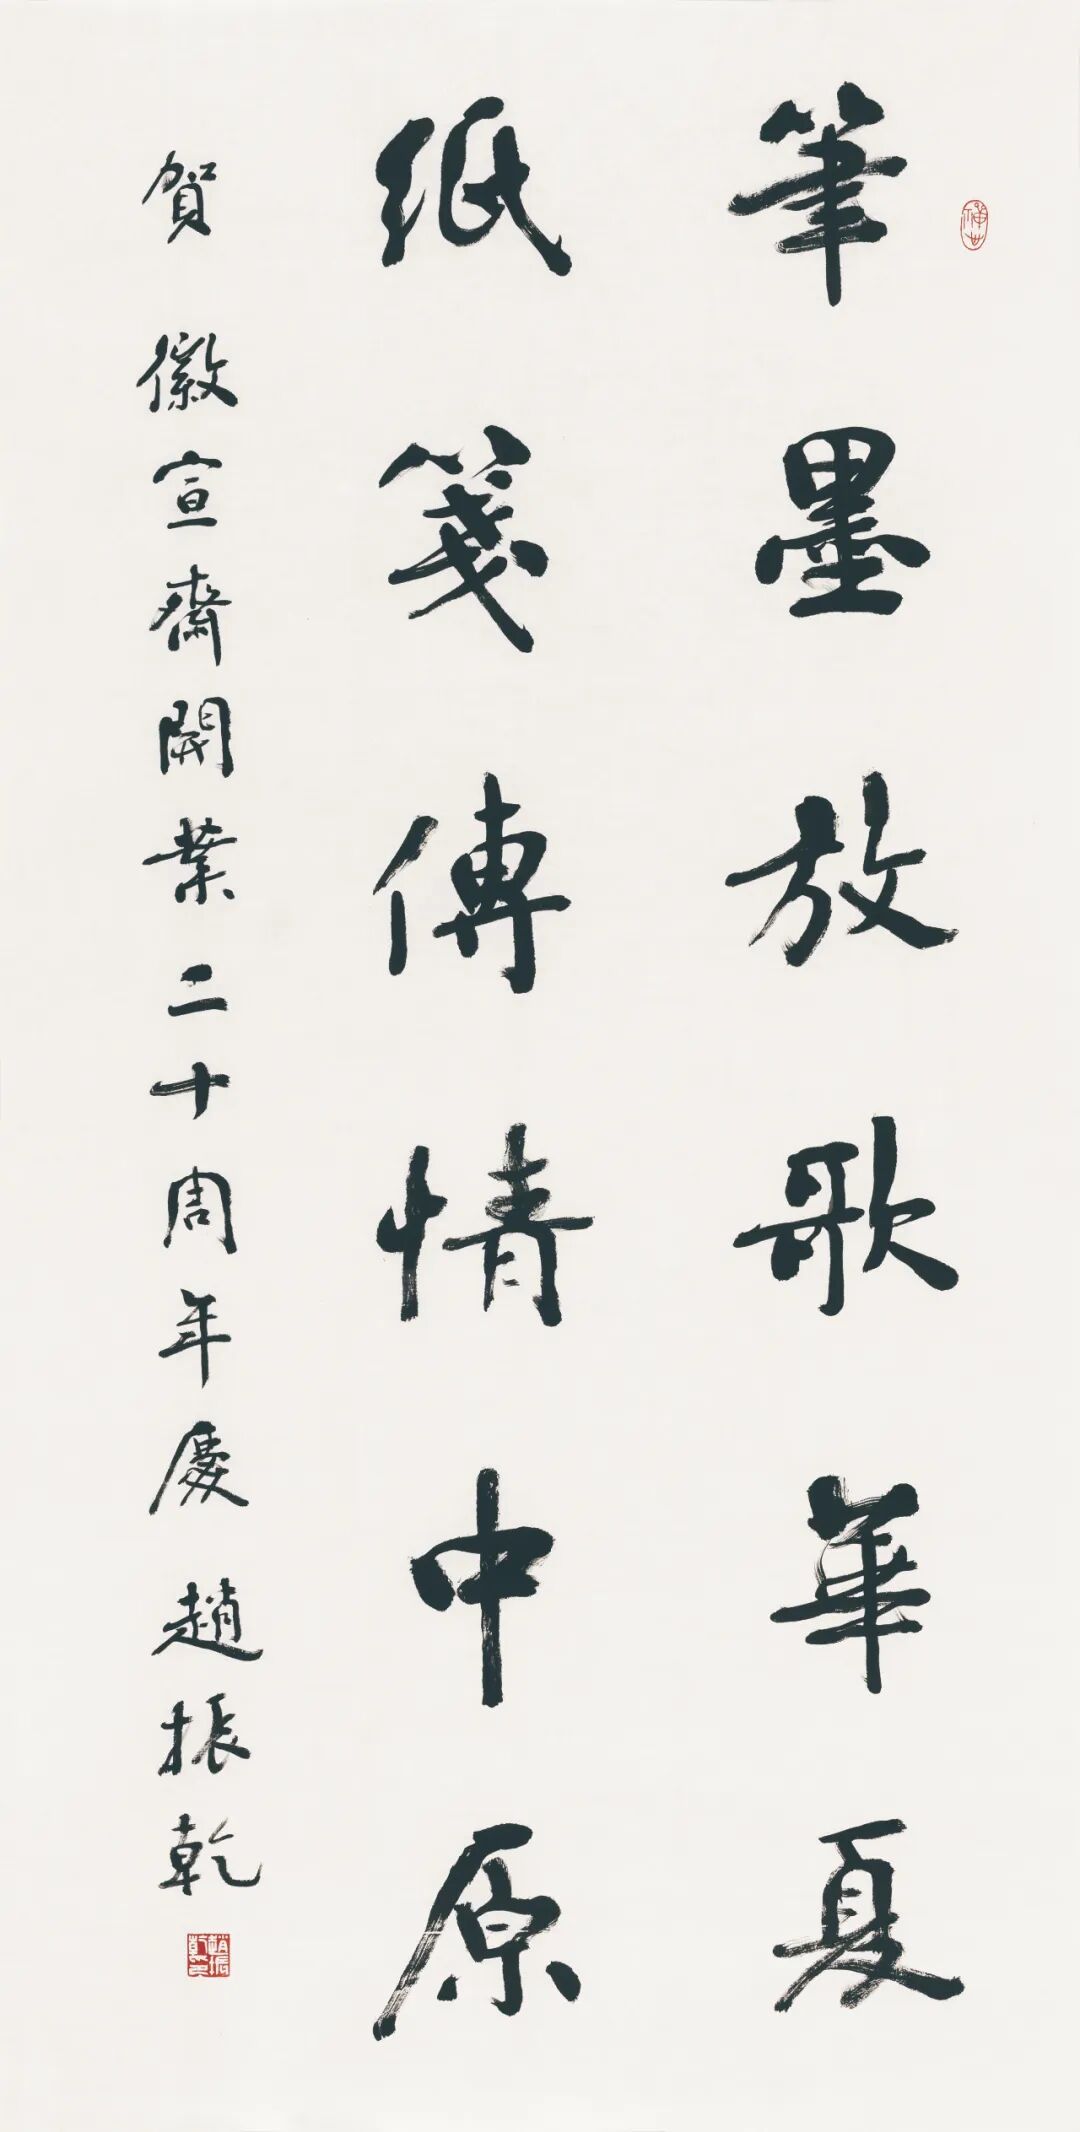 筆墨放歌華夏
紙箋傳情中原
賀徽宣齋開業二十周年慶 趙振乾
趙振乾印